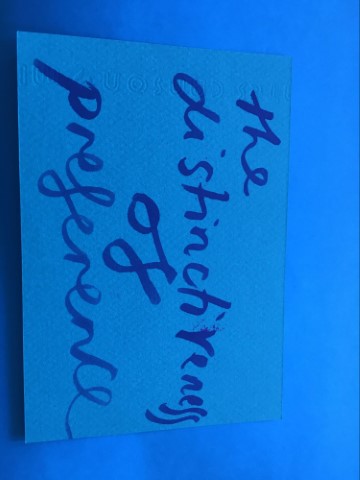 the
distinctiveness
of
preference